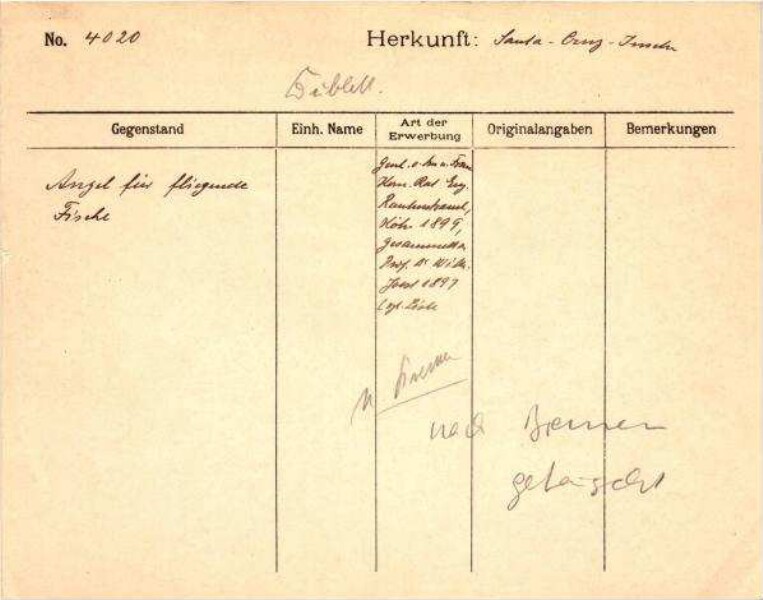 No. 4020 Herkunft: Santa-Cruz-Inseln
Dublett.
Gegenstand Einh. Name Art der Erwerbung Originalangaben Bemerkungen
Angel für fliegende
Fische
Frau
Kom. Rat Eug.
Rautenstrauch,
Köln 1899,
gesammelt v.
Prof. Dr. Wilh.
Joest 1897
Liste
n. Bremen
nach Bremen
getauscht